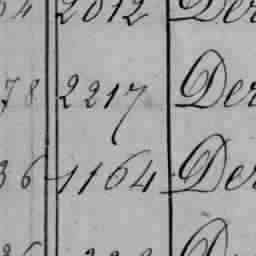 2012 Der
78 2217 Der
36 1164 Der